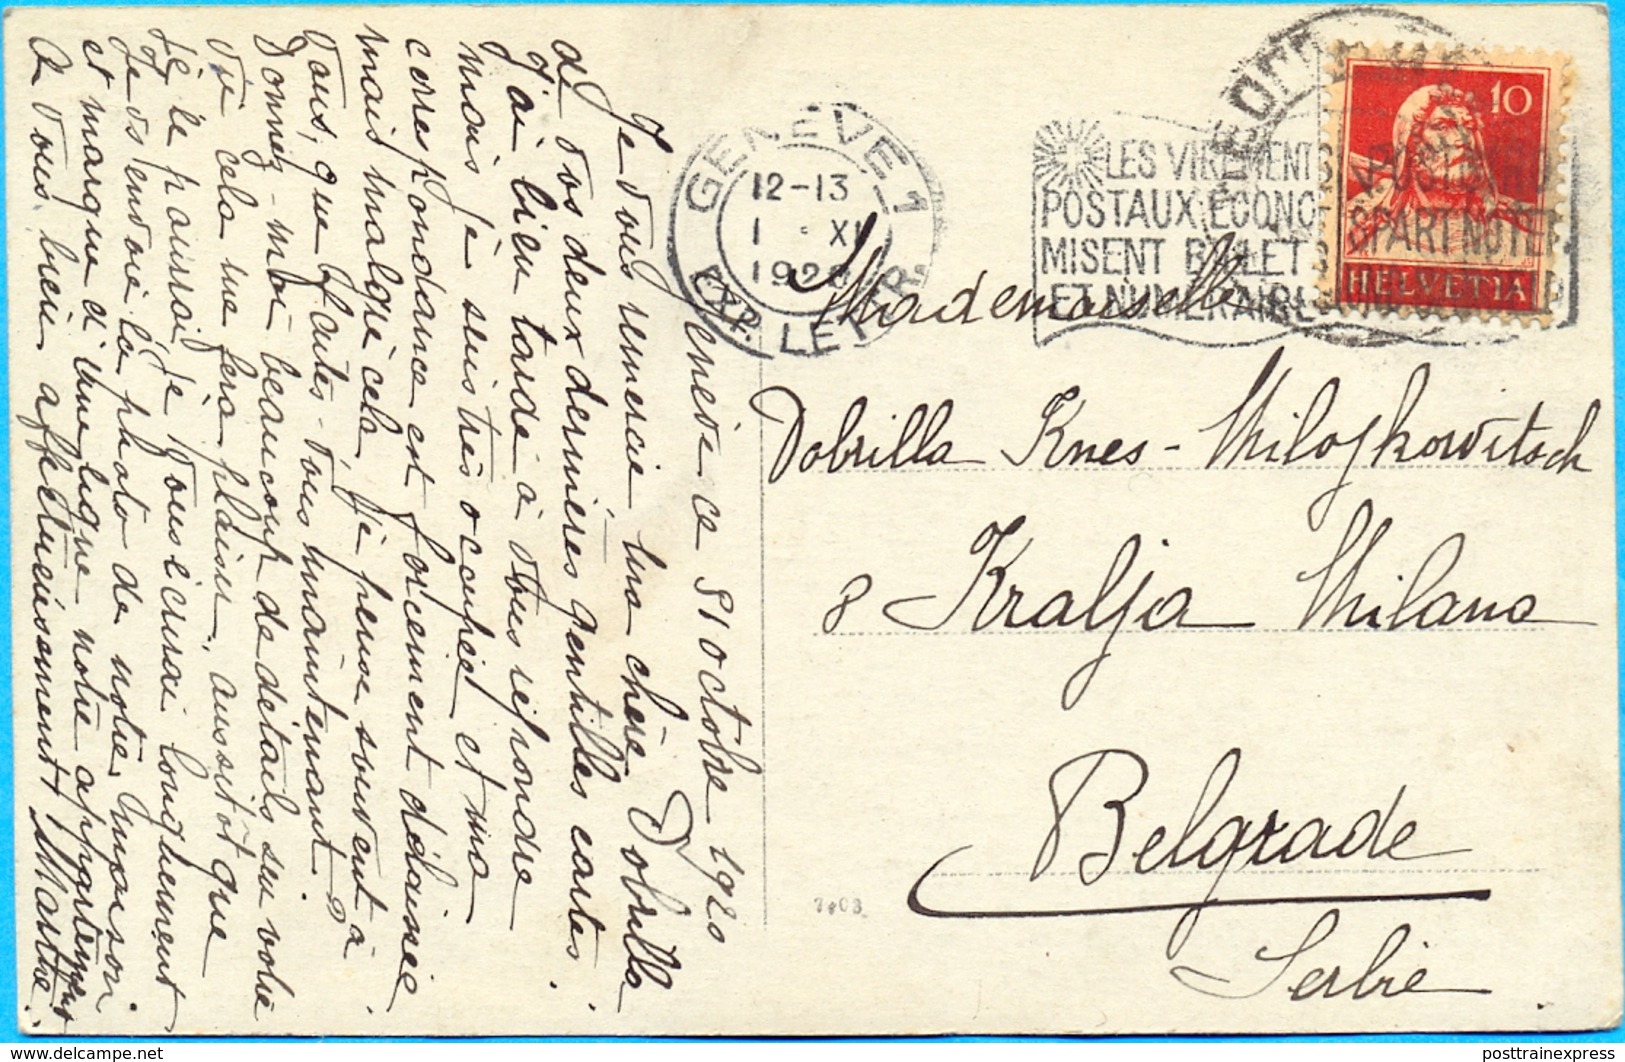 Genève ce 31 octobre 1920
Je vous remercie ma chère Dobrilla
de vos deux dernières gentilles cartes.
J'ai bien tardé à vous répondre
mais je suis très occupée et ma
correspondance est forcément délaissée
mais malgré cela, je pense souvent à
vous, que faites-vous maintenant?
Donnez-moi beaucoup de détails sur votre
vie cela me fera plaisir, aussitôt que
je le pourrai je vous écrirai longuement
Je vs envoie la photo de notre maison
et marque d'une ligne notre appartement
A vous bien affectueusement Marthe.
GENÈVE 1
12-13
1 · XI
192
EXP. LETTR.
LES VIREMENTS
POSTAUX ÉCONO
MISENT BILLETS
ET NUMÉRAIRE
10
HELVETIA
Mademoiselle
Dobrilla Knes-Miloskowitsch
8 Kralja Milana
Belgrade
Serbie
posttrainexpress
© delcampe.net